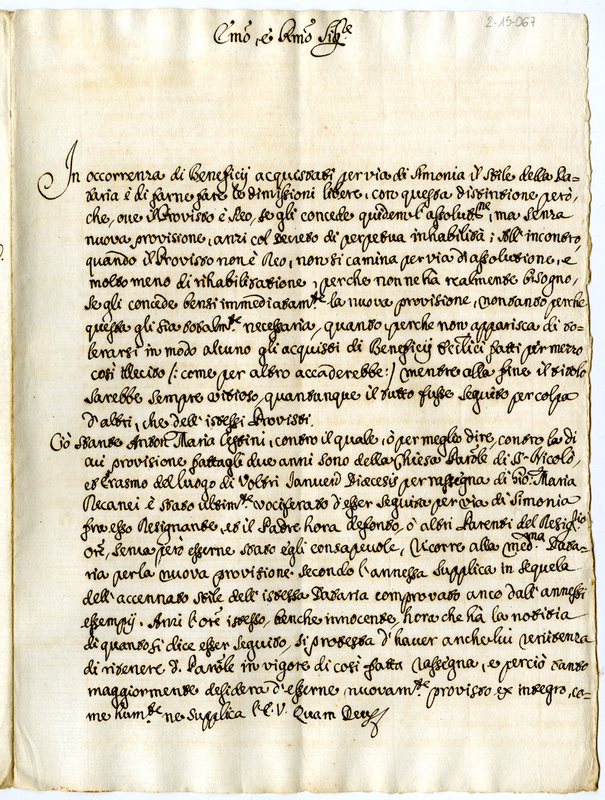 2-15-067
Em̃o, e Rm̃o Sig.re
In occorrenza di Beneficij acquistati per via di Simonia il stile della Da=
taria è di farne fare le dimissioni libere, con questa distintione però,
che, oue il Prouisto è Reo, se gli concede quidem l'assolut.ne, ma senza
nuoua prouisione, anzi col decreto di perpetua inhabilità; All'incontro,
quando il Prouisto non è Reo, non si camina per via d'assolutione, e
molto meno di rihabilitatione, perche non ne hà realmente bisogno,
Se gli concede bensi immediatam.te la nuoua prouisione, non tanto perche
questa gli sia totalm.te necessaria, quanto, perche non apparisca di to=
lerarsi in modo alcuno gli acquisti di Beneficij fatti per mezzo
così illecito /: come per altro accaderebbe :/ mentre alla fine il titolo
sarebbe sempre vitioso, quantunque il tutto fusse seguito per colpa
d'altri, che dell'istessi Prouisti.
Ciò stante Anton Maria, contro il quale, ò per meglio dire, contro la di
cui prouisione fattagli due anni sono della Chiesa Par̃ole di S. Nicolò,
et Erasmo del luogo di Voltri Januen̄ Diecesis per rassegna di Gio: Maria
Recanei è stato ultim.te vociferato d'esser seguita per via di Simonia
fra esso Resignante, et il Padre hora defonto, ò altri Parenti del
Ore, senza però esserne stato egli consapeuole, Ricorre alla med.ma Data=
ria per la nuoua prouisione secondo l'annessa supplica in sequela
dell'accennato stile dell'istessa Dataria comprouato anco dall'annessi
essempij. Anzi l'Ore istesso, benche innocente, hora che hà la notitia
di quanto si dice esser seguito, si protesta d'hauer anche lui renitenza
di ritenere d. Par̃ole in vigore di così fatta rassegna, e perciò tanto
maggiormente desidera d'esserne nuouam.te prouisto ex integro, co=
me hum.te ne supplica l'E.V. Quam Deus